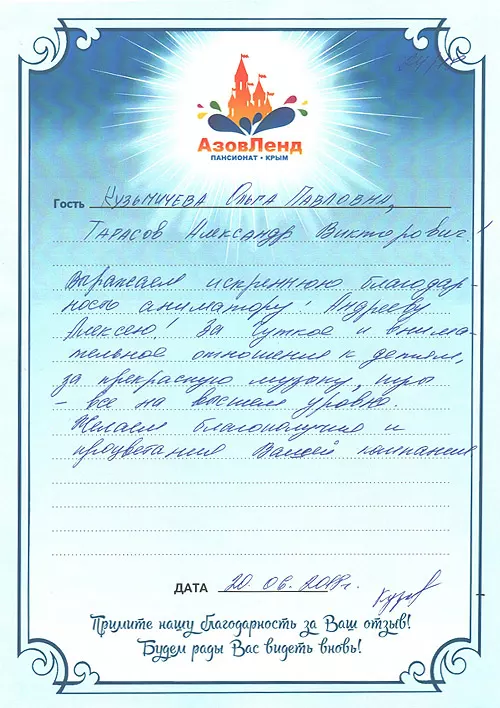 АзовЛенд
ПАНСИОНАТ • КРЫМ
Гость Кузьмичева Ольга Павловна,
Тарасов Александр Викторович!
Выражаем искреннюю благодар-
ность аниматору! Андрееву
Алексею! За чуткое и внима-
тельное отношения к детям,
за прекрасную музыку, игры
- все на высшем уровне.
Желаем благополучия и
процветания Вашей компании
ДАТА 20.06.2019г.
Примите нашу благодарность за Ваш отзыв!
Будем рады Вас видеть вновь!